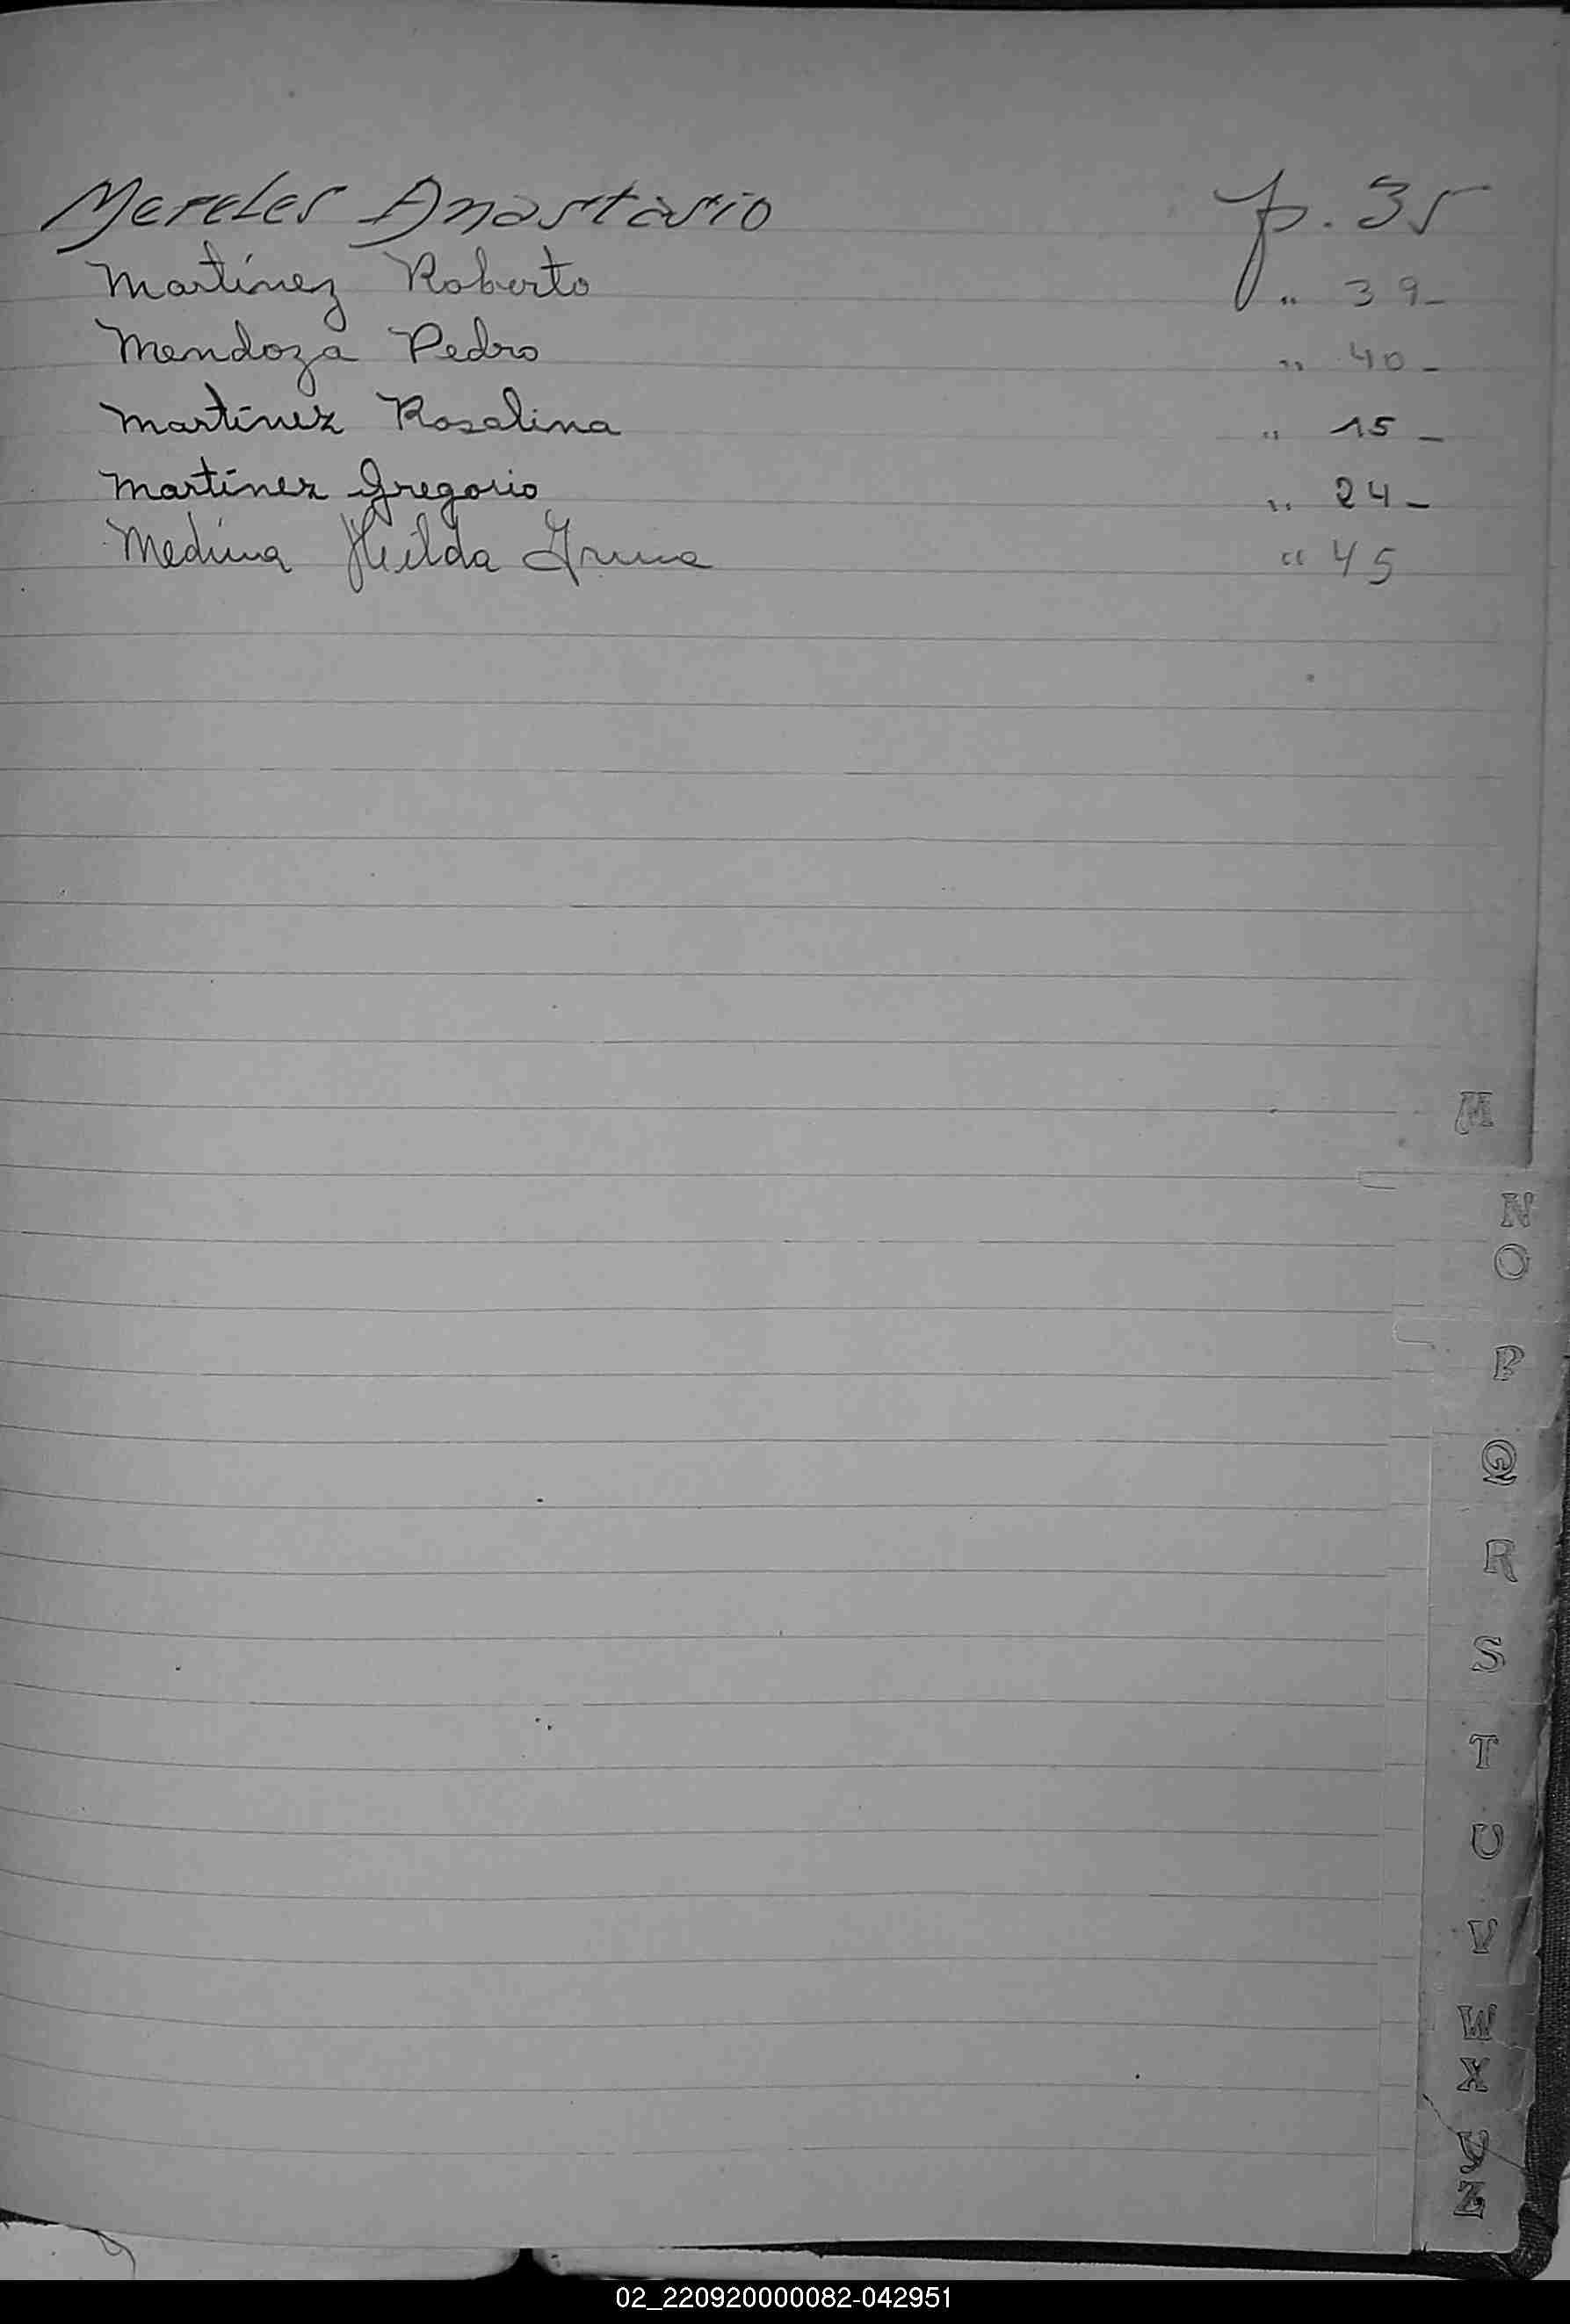 Mereles Anastasio p. 35
Martínez Roberto " 39-
Mendoza Pedro " 40-
Martínez Rosalina " 15-
Martínez Gregorio " 24-
Medina Hilda " 45
M
N
O
P
Q
R
S
T
U
V
W
X
Y
Z
02_220920000082-042951